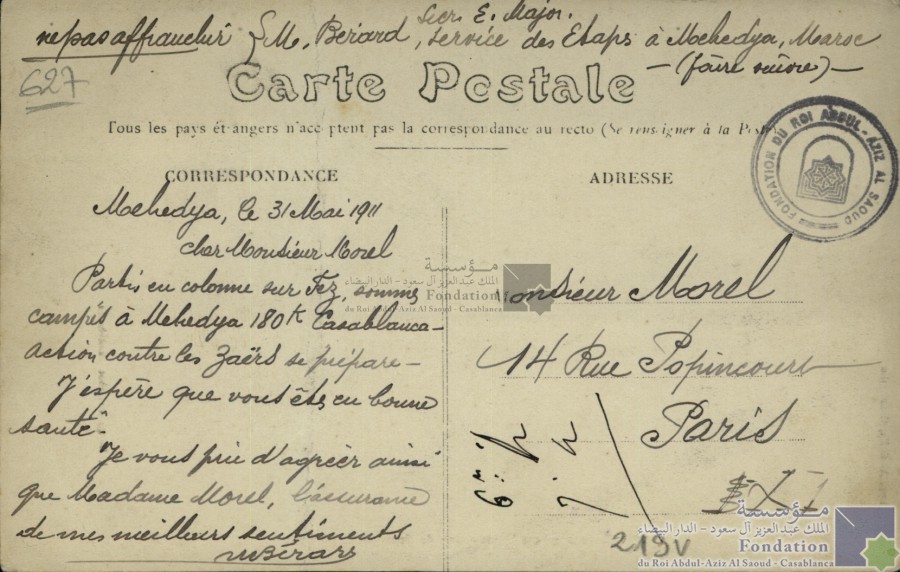 ne pas affranchir { M. Bérard, Secr. E. Major.
Service des Etaps à Mehedya, Maroc
627
— (faire suivre) —
Carte Postale
Tous les pays étrangers n'acceptent pas la correspondance au recto (Se renseigner à la Poste
FONDATION DU ROI ABDUL-AZIZ AL SAOUD
CORRESPONDANCE
ADRESSE
Mehedya, le 31 Mai 1911
cher Monsieur Morel
Partis en colonne sur Fez, sommes
campés à Mehedya 180k Casablanca-
action contre les Zaërs se prépare-
J'espère que vous êtes en bonne
santé-
Je vous prie d'agréer ainsi
que Madame Morel, l'assurance
de mes meilleurs sentiments
MBérard
Monsieur Morel
14 Rue Popincourt
Paris
XI
219V
مؤسسة
الملك عبدالعزيز آل سعود - الدار البيضاء
Fondation
du Roi Abdul-Aziz Al Saoud - Casablanca
مؤسسة
الملك عبدالعزيز آل سعود - الدار البيضاء
Fondation
du Roi Abdul-Aziz Al Saoud - Casablanca